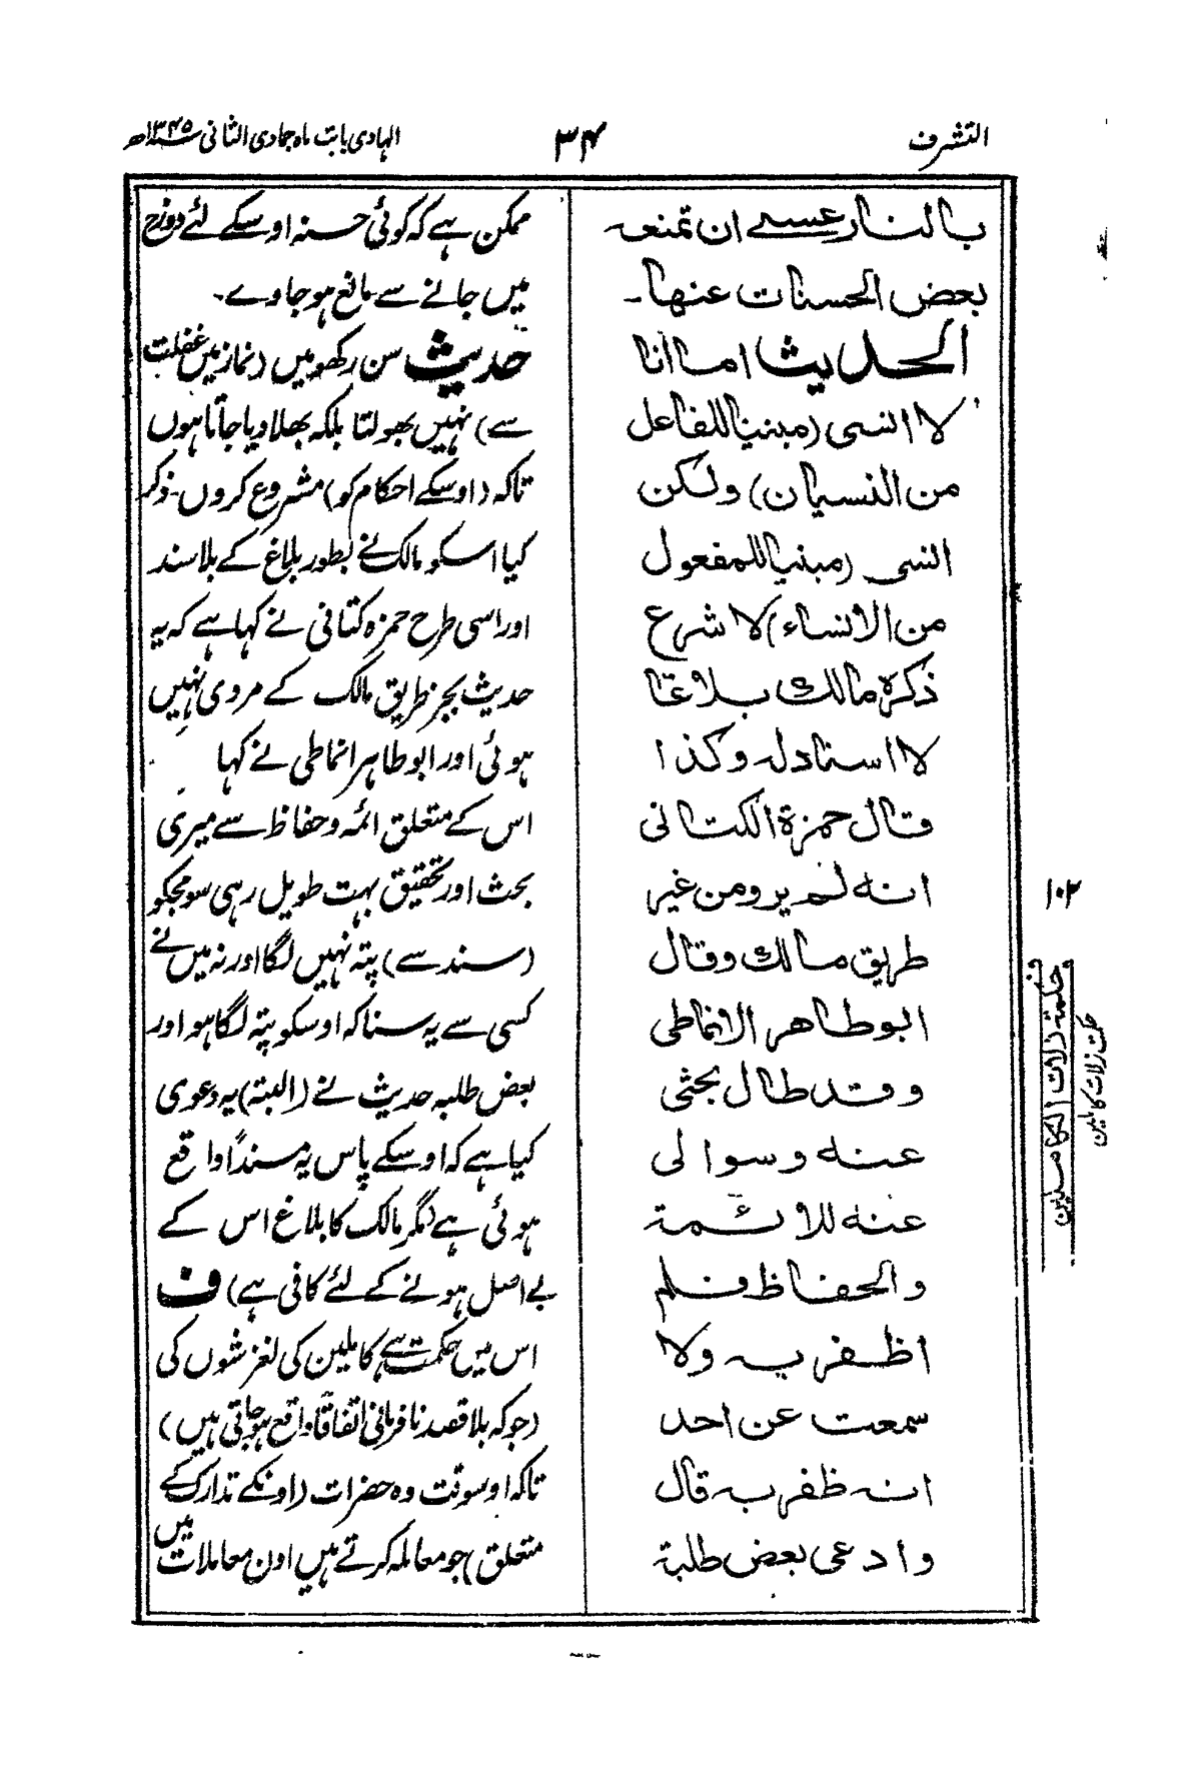 التشرف
۳۴
الہادی بابت ماہ جمادی الثانی ۱۳۴۵ھ
بالنار عسے ان تمنعہ
بعض الحسنات عنها۔
الحدیث اما انا
لا انسی (مبنیا للفاعل
من النسیان) ولکن
انسی (مبنیا للمفعول
من الانساء) لا شرع
ذکرہ مالك بلاغا
لا اسناد لہ وکذا
قال حمزة الکتانی
انه لم یرو من غیر
طریق مالك وقال
ابو طاهر الانماطی
وقد طال بحثی
عنه وسوالی
عنه للائمة
والحفاظ فلم
اظفر بہ ولا
سمعت عن احد
انہ ظفر بہ قال
وادعی بعض طلبة
ممکن ہے کہ کوئی حسنہ اوسکے لئے دوزخ
میں جانے سے مانع ہو جاوے۔
حدیث سن رکھو میں (نماز میں غفلت
سے) نہیں بھولتا بلکہ بھلا دیا جاتا ہوں
تاکہ (اوسکے احکام کو) مشروع کروں۔ ذکر
کیا اسکو مالک نے بطور بلاغ کے بلا سند
اور اسی طرح حمزہ کتانی نے کہا ہے کہ یہ
حدیث بجز طریق مالک کے مروی نہیں
ہوئی اور ابو طاہر انماطی نے کہا
اس کے متعلق ائمہ وحفاظ سے میری
بحث اور تحقیق بہت طویل رہی سو مجکو
(سند سے) پتہ نہیں لگا اور نہ میں نے
کسی سے یہ سنا کہ اوسکو پتہ لگا ہو اور
بعض طلبہ حدیث نے (البتہ) یہ دعوی
کیا ہے کہ اوسکے پاس یہ مسنداً واقع
ہوئی ہے (مگر مالک کا بلاغ اس کے
بے اصل ہونے کے لئے کافی ہے) ف
اس میں حکمت ہے کاملین کی لغزشوں کی
(جو کہ بلا قصد نافرمانی اتفاقاً واقع ہو جاتی ہیں)
تاکہ اوسوقت وہ حضرات (اونکے تدارک کے
متعلق) جو معاملہ کرتے ہیں اون معاملات میں
۱۰۲
حکمة زلات الکاملین
حکمت زلات کاملین